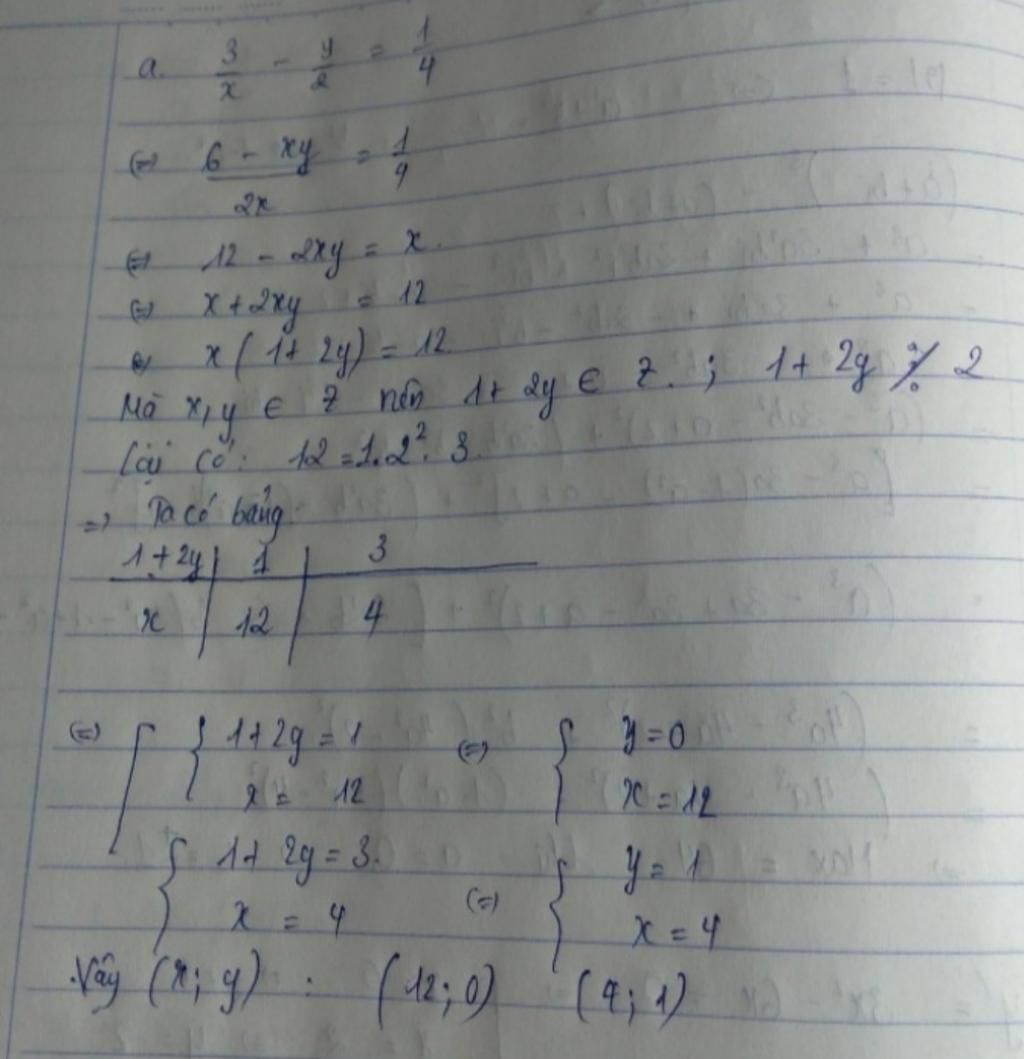 a. 3/x - y/2 = 1/4
(=) 6 - xy/2x = 1/4
(=) 12 - 2xy = x.
(=) x + 2xy = 12
(=) x(1 + 2y) = 12
Mà x, y ∈ Z nên 1 + 2y ∈ Z. ; 1 + 2y ⋮̸ 2
Lại có: 12 = 1.2². 3
=) Ta có bảng:
1 + 2y | 1 | 3
x | 12 | 4
(=) [ { 1 + 2y = 1 (=) { y = 0
x = 12 x = 12
{ 1 + 2y = 3. (=) { y = 1
x = 4 x = 4
Vậy (x; y) : (12; 0) (4; 1)